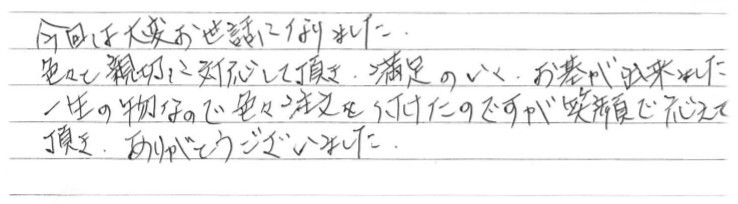 今回は大変お世話になりました.
色々と親切に対応して頂き.満足のいく.お墓が出来ました
一生の物なので色々注文を付けたのですが笑顔で応えて
頂き.ありがとうございました.